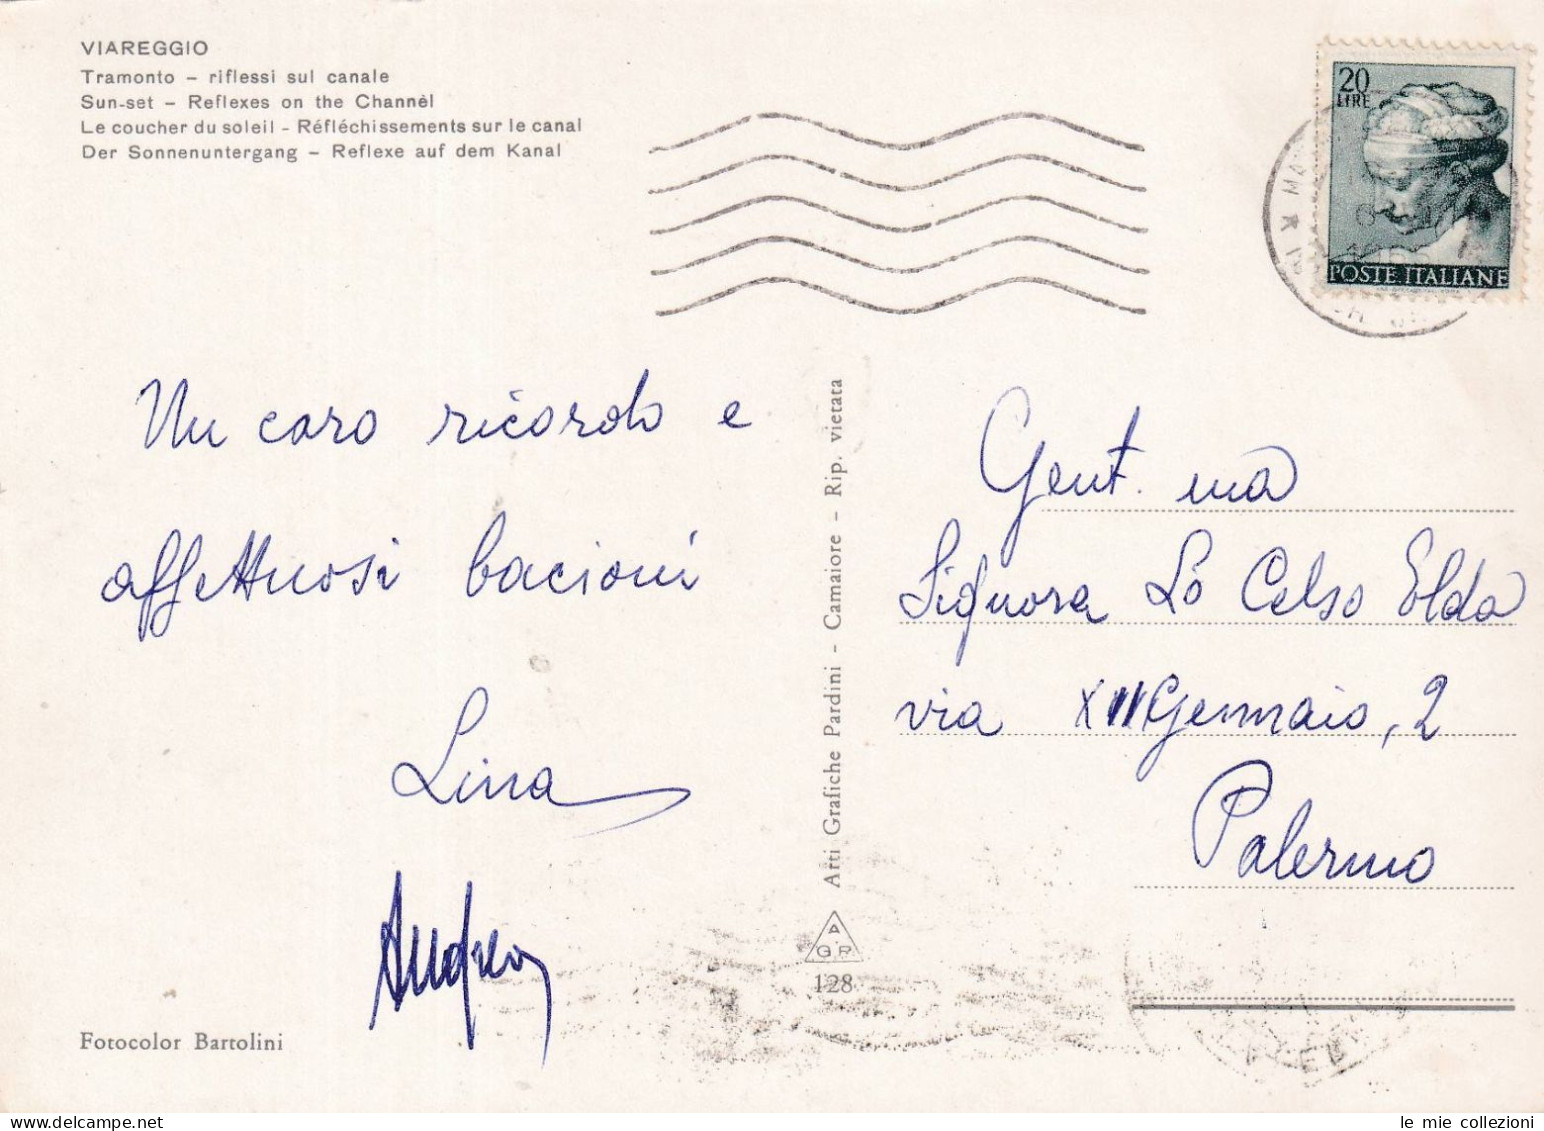 VIAREGGIO
Tramonto – riflessi sul canale
Sun-set – Reflexes on the Channèl
Le coucher du soleil - Réfléchissements sur le canal
Der Sonnenuntergang – Reflexe auf dem Kanal
20
LIRE
POSTE ITALIANE
Un caro ricordo e
affettuosi bacioni
Lina
Andrea
Fotocolor Bartolini
Arti Grafiche Pardini - Camaiore - Rip. vietata
A.
G.P.
128
Gent. ma
Signora Lo Celso Elda
via XII Gennaio, 2
Palermo
le mie collezioni